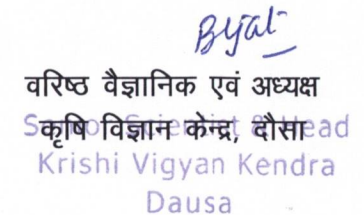 वरिष्ठ वैज्ञानिक एवं अध्यक्ष
कृषि विज्ञान केन्द्र, दौसा
Senior Scientist & Head
Krishi Vigyan Kendra
Dausa